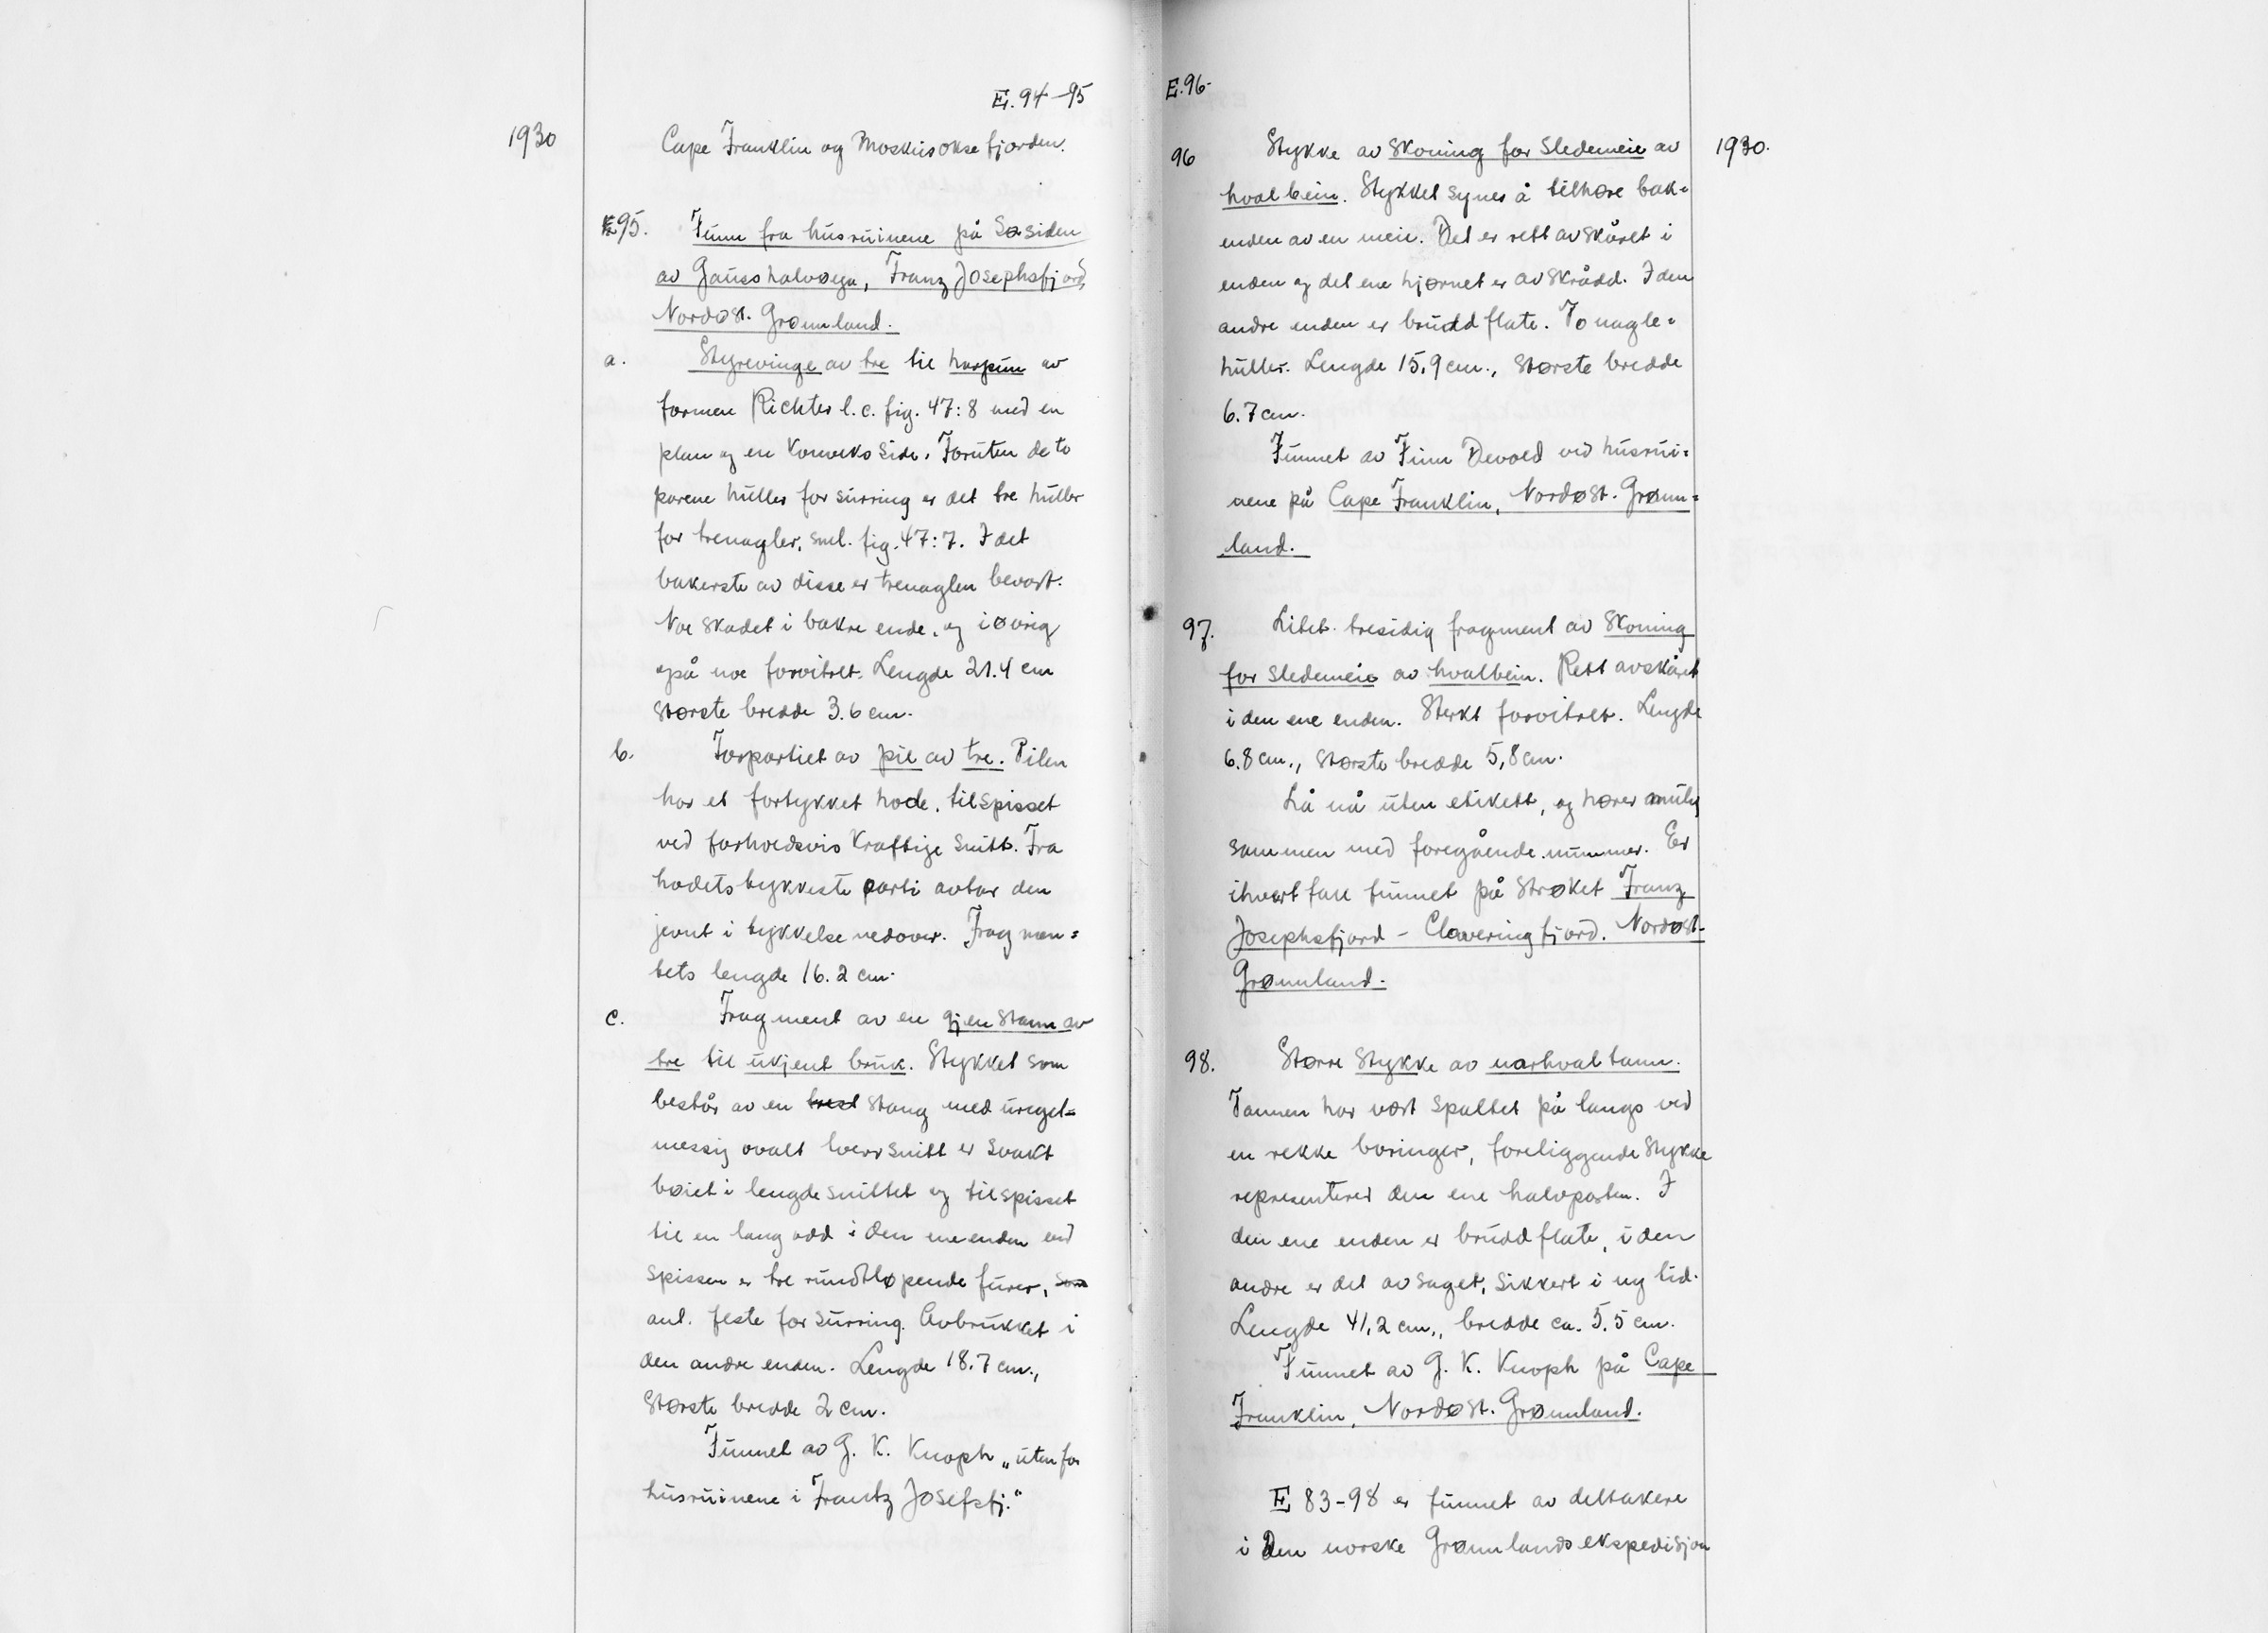 E. 94-95
1930
Cape Franklin og Moskusoksefjorden.
E95. Funn fra husruinene på Søsiden
av Gausshalvøya, Franz Josephsfjord,
Nordøst-Grønnland.
a. Styrevinge av tre til harpun av
formen Richter l.c. fig. 47:8 med en
plan og en konveks side. Foruten de to
parene huller for surring er det tre huller
for trenagler, sml. fig. 47:7. I det
bakerste av disse er trenaglen bevart.
Noe skadet i bakre ende, og iøvrig
også noe forvitret. Lengde 21.4 cm
største bredde 3.6 cm.
b. Forpartiet av pil av tre. Pilen
har et fortykket hode, tilspisset
ved forholdsvis kraftige snitt. Fra
hodets tykkeste parti avtar den
jevnt i tykkelse nedover. Fragmen=
tets lengde 16.2 cm.
c. Fragment av en gjenstann av
tre til ukjent bruk. Stykket som
består av en stang med uregel=
messig ovalt tverrsnitt er svakt
bøiet i lengdesnittet og tilspisset
til en lang odd i den ene enden ved
spissen er tre rundtløpende furer, som
anl. feste for surring. Avbrukket i
den andre enden. Lengde 18.7 cm.,
Største bredde 2 cm.
Funnet av G. K. Knoph „utenfor
husruinene i Frantz Josefsfj."
E. 96-
1930.
96 Stykke av skoning for sledemeie av
hvalbein. Stykket synes å tilhøre bak=
enden av en meie. Det er rett avskåret i
enden og det ene hjørnet er avskrådd. I den
andre enden er bruddflate. To nagle=
huller. Lengde 15,9 cm., største bredde
6.7 cm.
Funnet av Finn Devold ved husrui=
nene på Cape Franklin, Nordøst-Grønn=
land.
97. Litet tresidig fragment av skoning
for sledemeie av hvalbein. Rett avskåret
i den ene enden. Sterkt forvitret. Lengde
6.8 cm., største bredde 5,8 cm.
Lå nå uten etikett, og hører mulig
sammen med foregående nummer. Er
ihvertfall funnet på strøket Franz
Josephsfjord - Claveringfjord. Nordøst-
Grønnland.
98. Større stykke av narhvaltann.
Tannen har vært spaltet på langs ved
en rekke boringer, foreliggende stykke
representerer den ene halvparten. I
den ene enden er bruddflate, i den
andre er det avsaget, sikkert i ny tid.
Lengde 41,2 cm., bredde ca. 5,5 cm.
Funnet av G. K. Knoph på Cape
Franklin, Nordøst-Grønnland.
E 83-98 er funnet av deltakere
i Den norske Grønnlandsekspedisjon